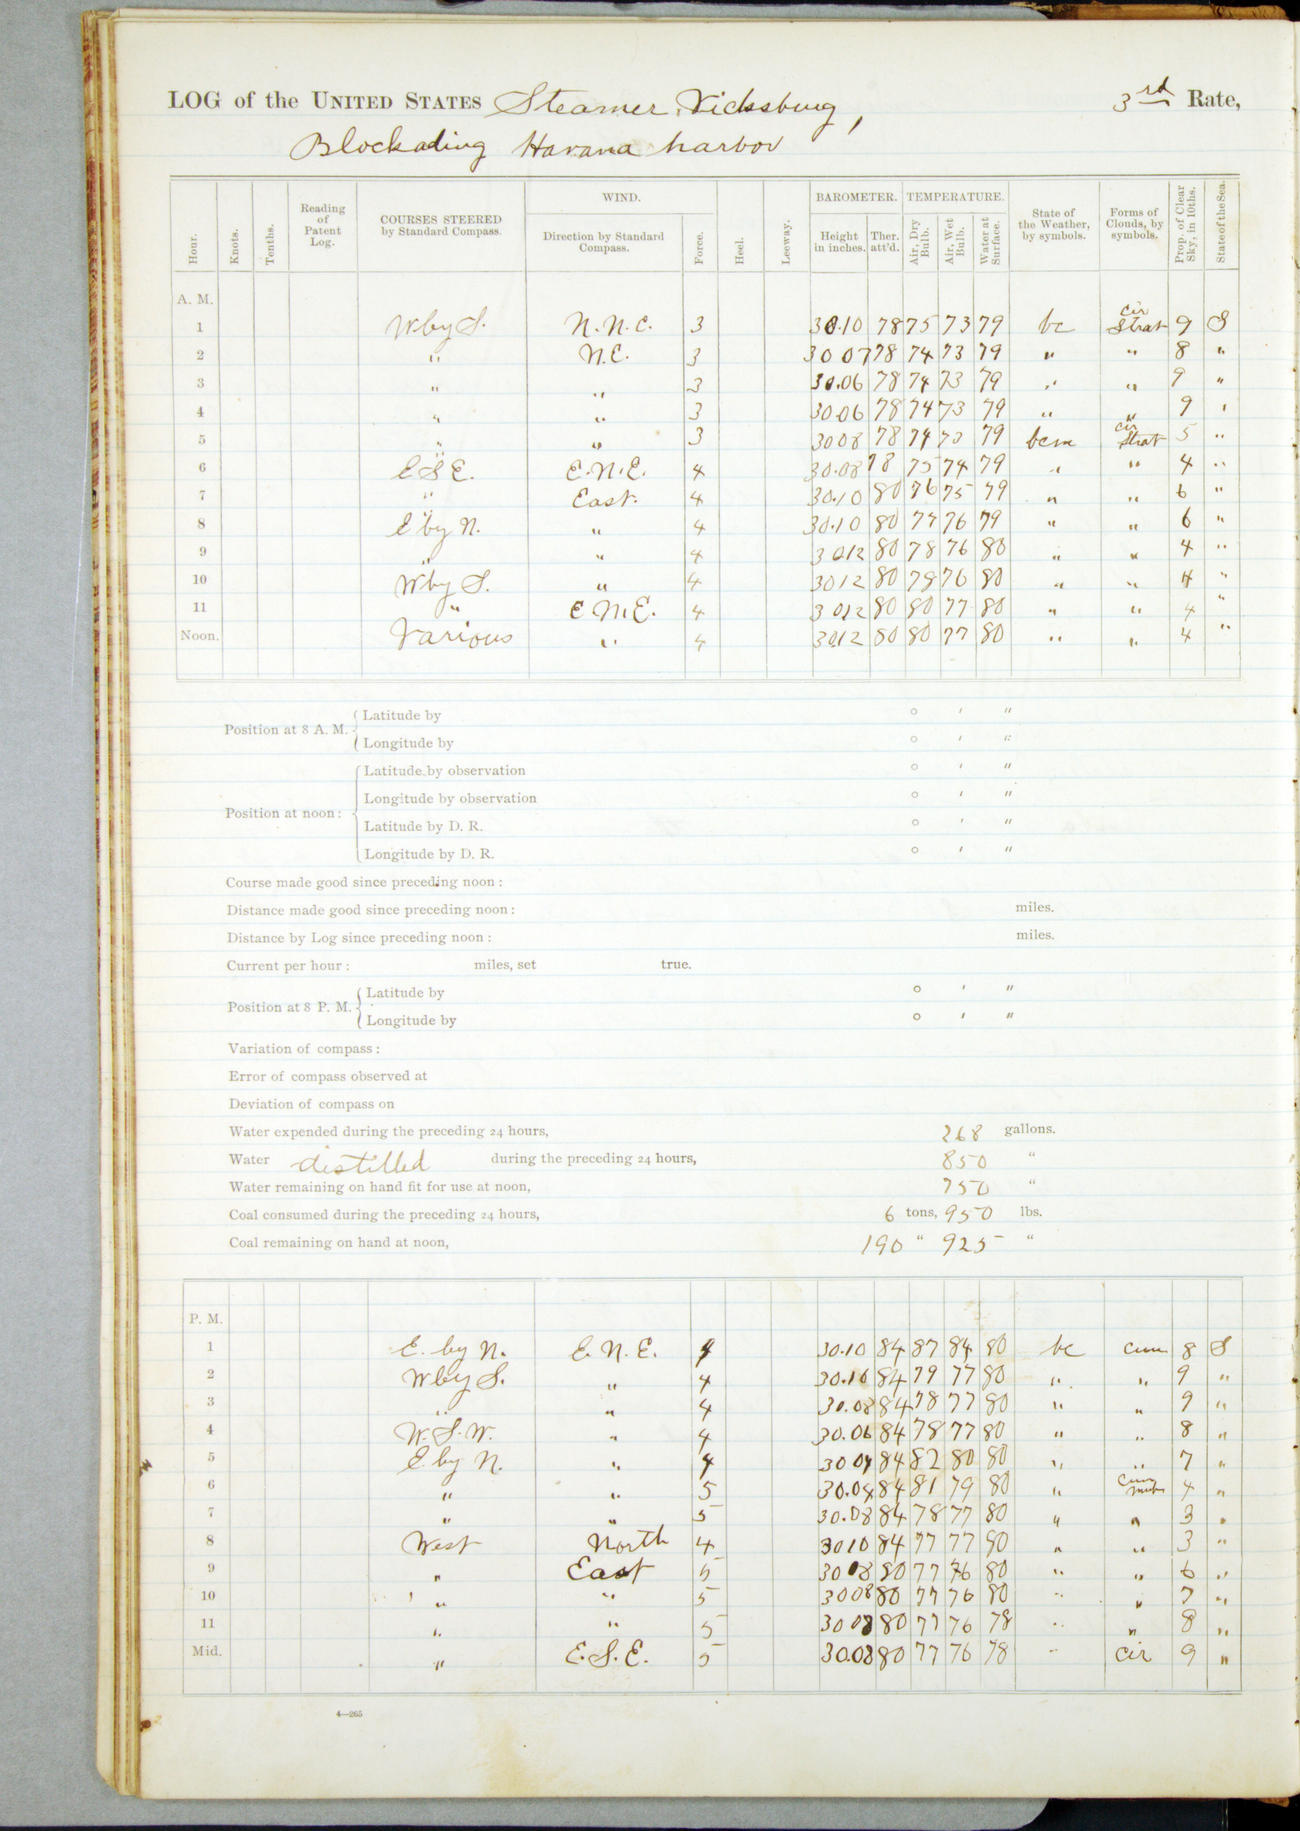 LOG of the UNITED STATES Steamer Vicksburg, 3rd Rate,
Blockading Havana harbor
Hour. Knots. Tenths. Reading of Patent Log. COURSES STEERED by Standard Compass. WIND. Direction by Standard Compass. Force. Heel. Leeway. BAROMETER. Height in inches. Ther. att'd. TEMPERATURE. Air, Dry Bulb. Air, Wet Bulb. Water at Surface. State of the Weather, by symbols. Forms of Clouds, by symbols. Prop. of Clear Sky, in 10ths. State of the Sea.
A. M.
1 W by S. N.N.E. 3 30.10 78 75 73 79 bc cir Strat 9 S
2 " N.E. 3 30 07 78 74 73 79 " " 8 "
3 " " 3 30.06 78 74 73 79 " " 9 "
4 " " 3 3006 78 74 73 79 " " 9 "
5 " " 3 3008 78 74 73 79 bcm cir Strat 5 "
6 E S E. E.N.E. 4 30.08 78 75 74 79 " " 4 "
7 " East. 4 30.10 80 76 75 79 " " 6 "
8 E by N. " 4 30.10 80 77 76 79 " " 6 "
9 " " 4 3012 80 78 76 80 " " 4 "
10 W by S. " 4 3012 80 78 76 80 " " 4 "
11 " E.N.E. 4 3012 80 80 77 80 " " 4 "
Noon. Various " 4 3012 80 80 77 80 " " 4 "
Position at 8 A. M. Latitude by ° ′ ″
Longitude by ° ′ ″
Latitude by observation ° ′ ″
Longitude by observation ° ′ ″
Position at noon:
Latitude by D. R. ° ′ ″
Longitude by D. R. ° ′ ″
Course made good since preceding noon:
Distance made good since preceding noon: miles.
Distance by Log since preceding noon: miles.
Current per hour: miles, set true.
Position at 8 P. M. Latitude by ° ′ ″
Longitude by ° ′ ″
Variation of compass:
Error of compass observed at
Deviation of compass on
Water expended during the preceding 24 hours, 268 gallons.
Water distilled during the preceding 24 hours, 850 "
Water remaining on hand fit for use at noon, 750 "
Coal consumed during the preceding 24 hours, 6 tons, 950 lbs.
Coal remaining on hand at noon, 190 " 925 "
P. M.
1 E. by N. E. N. E. 4 30.10 84 87 84 80 bc cum 8 S
2 W by S. " 4 30.10 84 79 77 80 " " 9 "
3 " " 4 30.08 84 78 77 80 " " 9 "
4 W.S.W. " 4 30.06 84 78 77 80 " " 8 "
5 E by N. " 4 3004 84 82 80 80 " " 7 "
6 " " 5 30.04 84 81 79 80 " cum 4 "
7 " " 5 30.08 84 78 77 80 " " 3 "
8 West North 4 3010 84 77 77 80 " " 3 "
9 " East 5 3008 80 77 76 80 " " 6 "
10 " " 5 3008 80 77 76 80 " " 7 "
11 " " 5 3008 80 77 76 78 " " 8 "
Mid. " E.S.E. 5 30.08 80 77 76 78 " cir 9 "
4—265